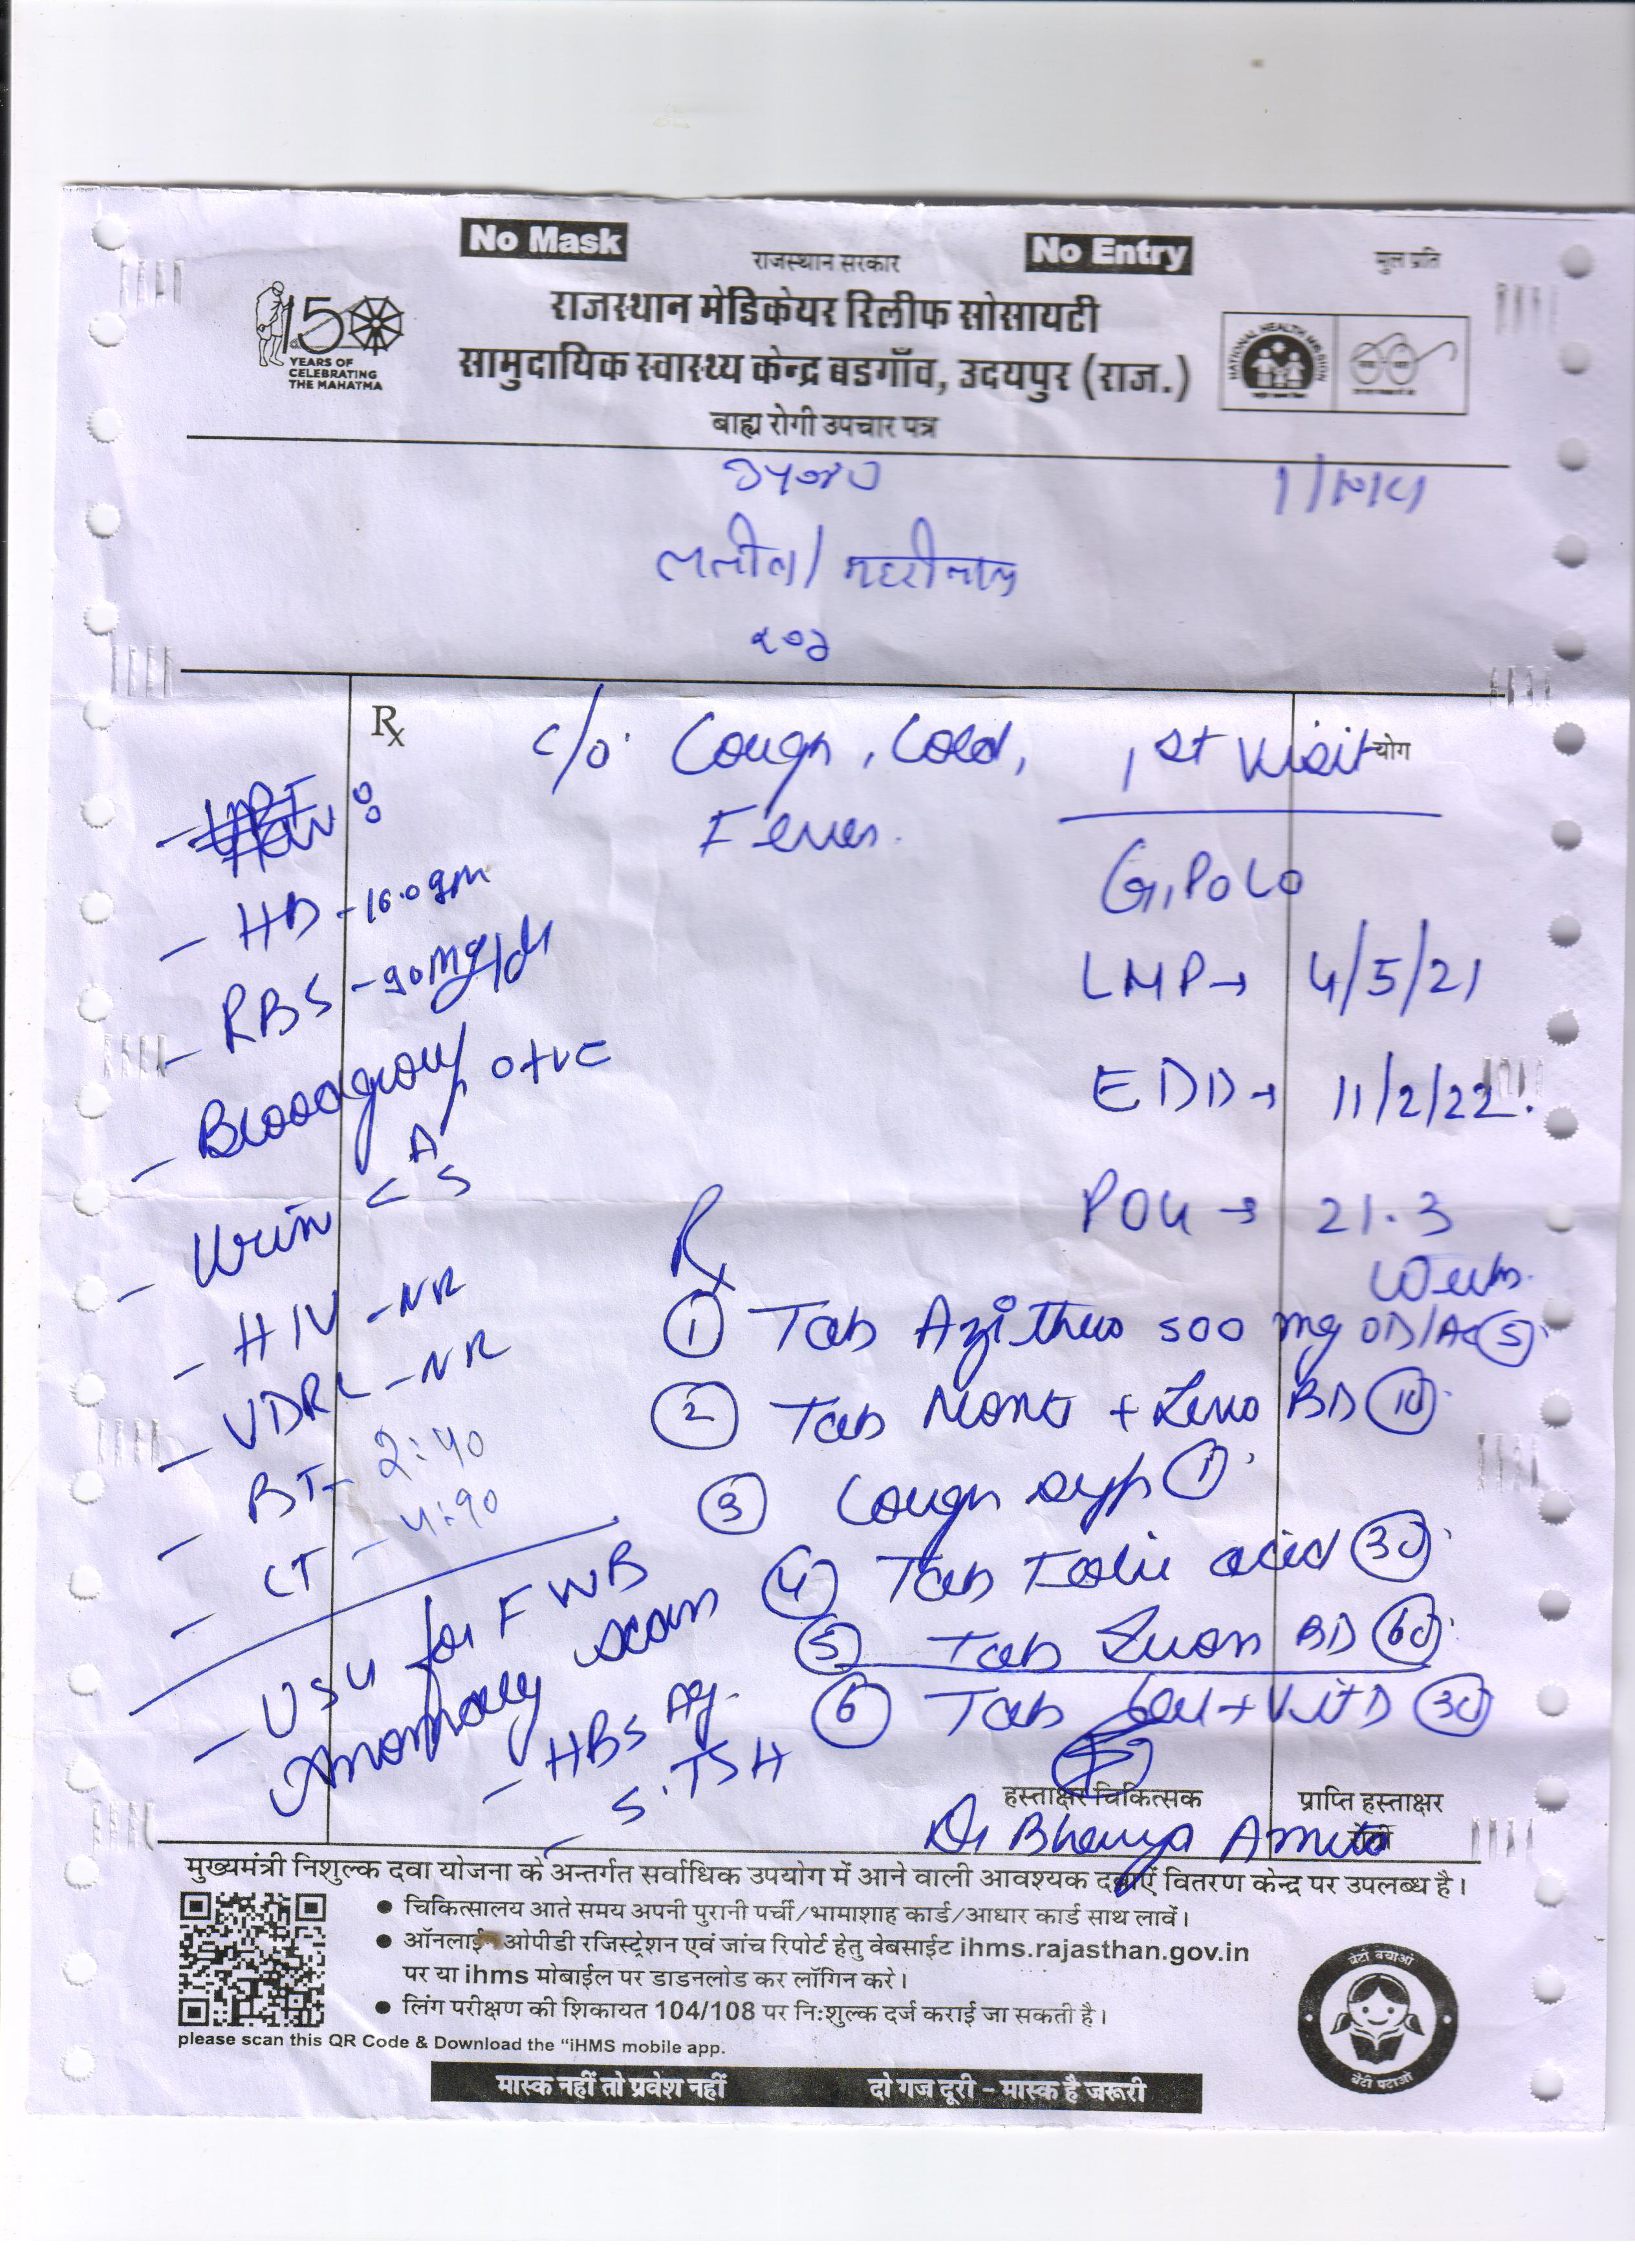 No Mask
राजस्थान सरकार
No Entry
मुल प्रति
150
YEARS OF
CELEBRATING
THE MAHATMA
राजस्थान मेडिकेयर रिलीफ सोसायटी
सामुदायिक स्वास्थ्य केन्द्र बडगाँव, उदयपुर (राज.)
NATIONAL HEALTH MISSION
बाह्य रोगी उपचार पत्र
Rx
योग
c/o. Cough, Cold,
Fever.
1st Visit
G1P0L0
LMP→ 4/5/21
EDD→ 11/2/22.
POG → 21.3
Weeks.
- HB - 10.0 gm
- RBS - 90 mg/dl
- Bloodgroup O+ve
- Urin < A
S
- HIV - NR
- VDRL - NR
- BT - 2:40
- CT - 4:90
- USG for FWB
Anomaly scan
- HBsAg.
- S.TSH
Rx
① Tab Azithro 500 mg OD/AC ⑤
② Tab Mont + Levo BD ⑩
③ Cough syp ①
④ Tab Folic acid ㉚
⑤ Tab Iron BD 60
⑥ Tab Cal + Vit D ㉚
हस्ताक्षर चिकित्सक
प्राप्ति हस्ताक्षर
मुख्यमंत्री निशुल्क दवा योजना के अन्तर्गत सर्वाधिक उपयोग में आने वाली आवश्यक दवाएं वितरण केन्द्र पर उपलब्ध है।
● चिकित्सालय आते समय अपनी पुरानी पर्ची/भामाशाह कार्ड/आधार कार्ड साथ लावें।
● ऑनलाईन ओपीडी रजिस्ट्रेशन एवं जांच रिपोर्ट हेतु वेबसाईट ihms.rajasthan.gov.in
पर या ihms मोबाईल पर डाडनलोड कर लॉगिन करे।
● लिंग परीक्षण की शिकायत 104/108 पर नि:शुल्क दर्ज कराई जा सकती है।
please scan this QR Code & Download the "iHMS mobile app.
बेटी बचाओ
बेटी पढाओ
मास्क नहीं तो प्रवेश नहीं
दो गज दूरी – मास्क है जरूरी